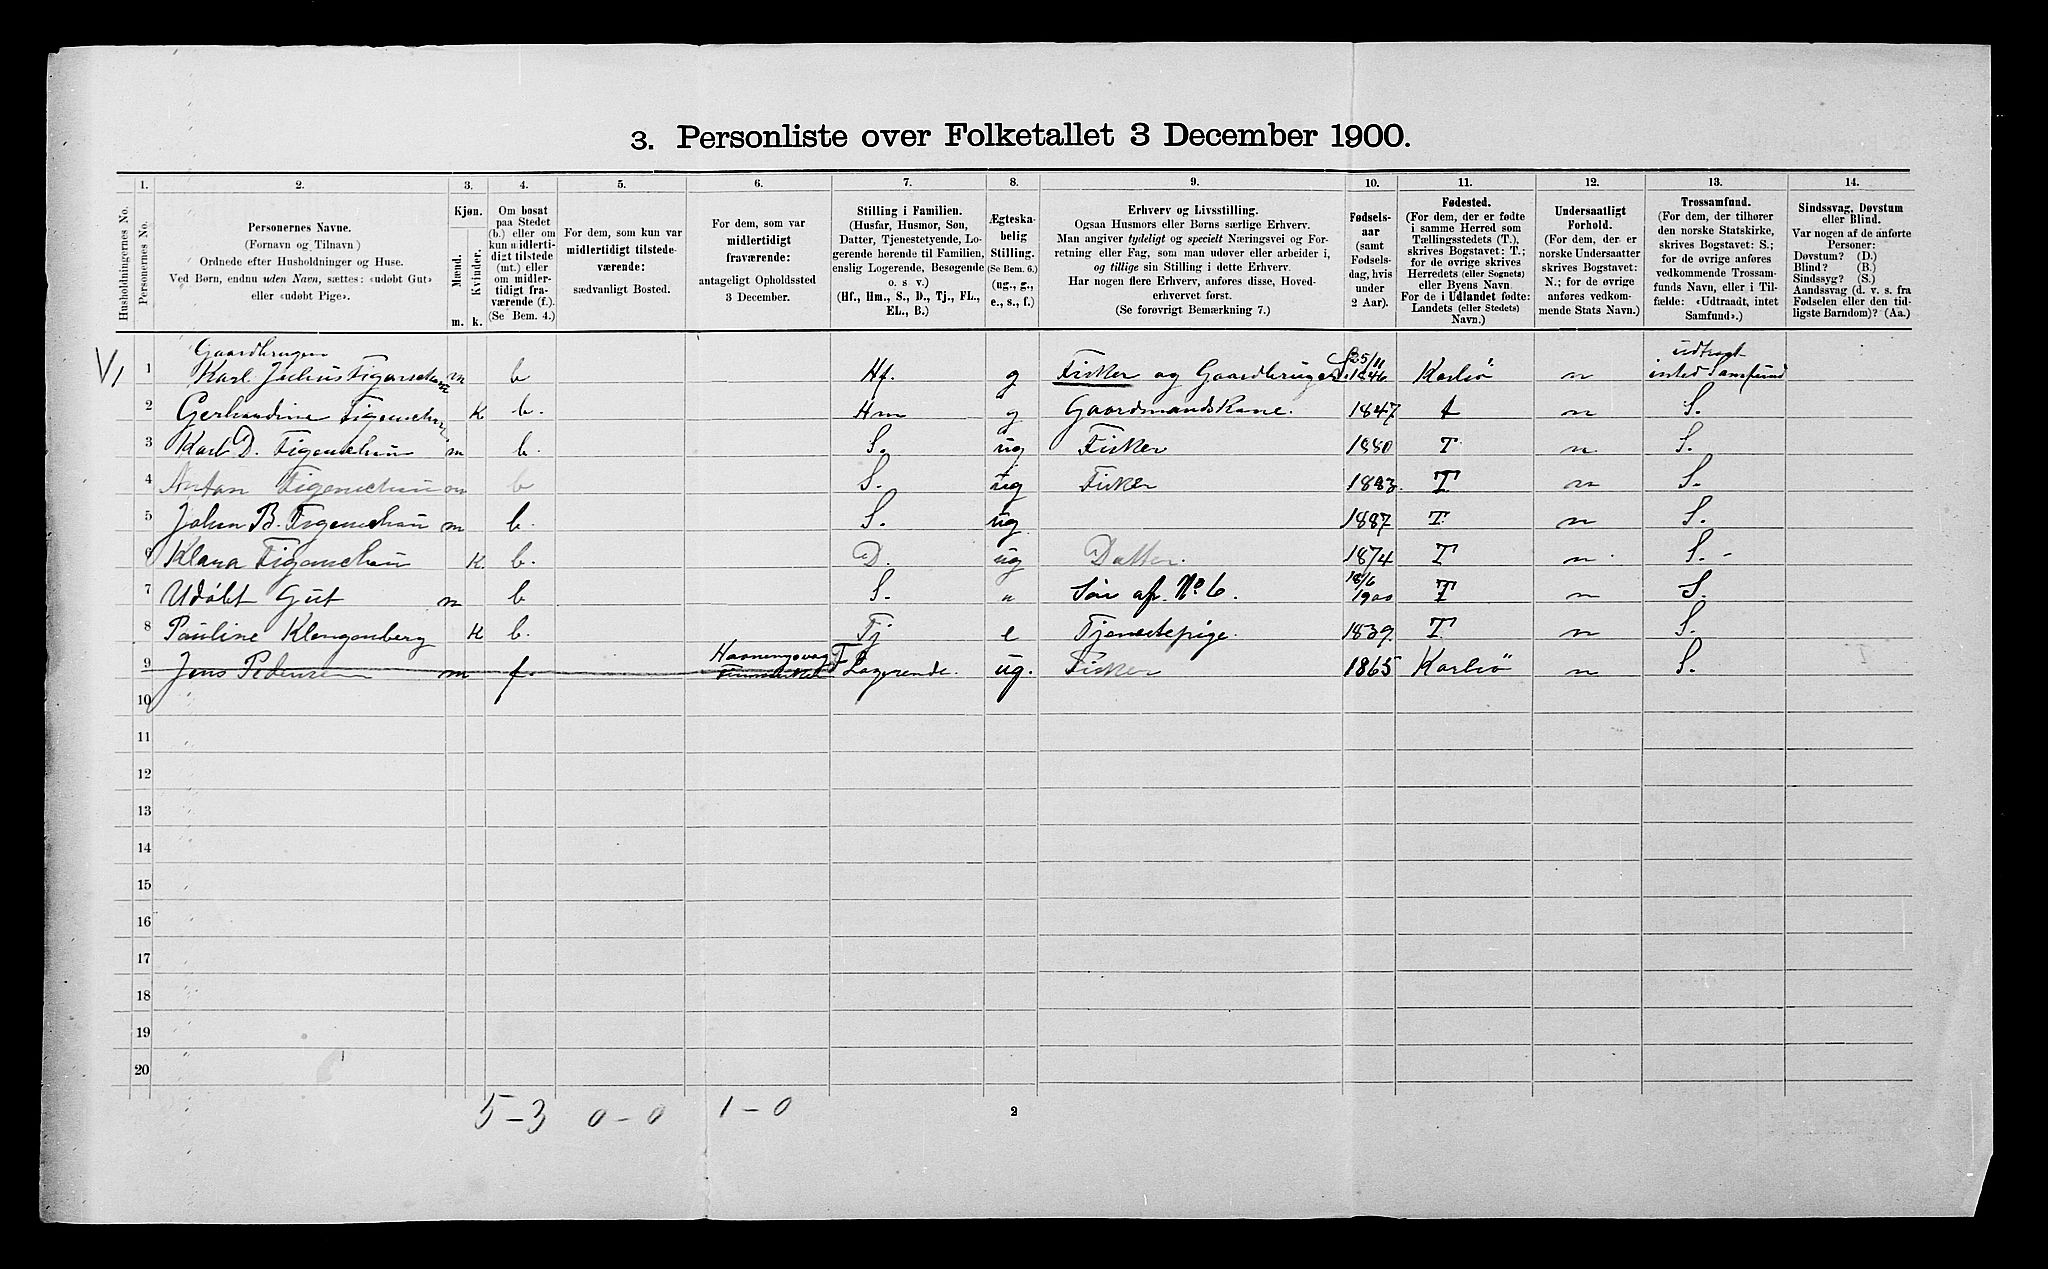 3. Personliste over Folketallet 3 December 1900.
1. 2. 3. 4. 5. 6. 7. 8. 9. 10. 11. 12. 13. 14.
Husholdningernes No.
Personernes No.
Personernes Navne.
(Fornavn og Tilnavn)
Ordnede efter Husholdninger og Huse.
Ved Børn, endnu uden Navn, sættes: «udøbt Gut»
eller «udøbt Pige».
Kjøn.
Mænd.
Kvinder.
m. k.
Om bosat
paa Stedet
(b.) eller om
kun midlerti-
digt tilstede
(mt.) eller
om midler-
tidigt fra-
værende (f.).
(Se Bem. 4.)
For dem, som kun var
midlertidigt tilstede-
værende:
sædvanligt Bosted.
For dem, som var
midlertidigt
fraværende:
antageligt Opholdssted
3 December.
Stilling i Familien.
(Husfar, Husmor, Søn,
Datter, Tjenestetyende, Lo-
gerende hørende til Familien,
enslig Logerende, Besøgende
o. s. v.)
(Hf., Hm., S., D., Tj., FL.,
EL., B.)
Ægteska-
belig
Stilling.
(Se Bem. 6.)
(ug., g.,
e., s., f.)
Erhverv og Livsstilling.
Ogsaa Husmors eller Børns særlige Erhverv.
Man angiver tydeligt og specielt Næringsvei og For-
retning eller Fag, som man udøver eller arbeider i,
og tillige sin Stilling i dette Erhverv.
Har nogen flere Erhverv, anføres disse, Hoved-
erhvervet først.
(Se forøvrigt Bemærkning 7.)
Fødsels-
aar
(samt
Fødsels-
dag, hvis
under
2 Aar).
Fødested.
(For dem, der er fødte
i samme Herred som
Tællingsstedets (T.),
skrives Bogstavet: T.;
for de øvrige skrives
Herredets (eller Sognets)
eller Byens Navn.
For de i Udlandet fødte:
Landets (eller Stedets)
Navn.)
Undersaatligt
Forhold.
(For dem, der er
norske Undersaatter
skrives Bogstavet:
N.; for de øvrige
anføres vedkom-
mende Stats Navn.)
Trossamfund.
(For dem, der tilhører
den norske Statskirke,
skrives Bogstavet: S.;
for de øvrige anføres
vedkommende Trossam-
funds Navn, eller i Til-
fælde: «Udtraadt, intet
Samfund».)
Sindssvag, Døvstum
eller Blind.
Var nogen af de anførte
Personer:
Døvstum? (D.)
Blind? (B.)
Sindssyg? (S.)
Aandssvag (d. v. s. fra
Fødselen eller den tid-
ligste Barndom)? (Aa.)
Gaardbruger 25/11
1 Karl Julius Figenschau m b Hf. g Fisker og Gaardbruger 1846 Karlsö n intet Samfund
2 Gerhardine Figenschau K b. Hm g Gaardmandskone. 1847 t n S.
3 Karl D. Figenschau m b. S. ug Fisker 1880 T n S.
4 Anton Figenschau m b S. ug Fisker 1883. T n S.
5 Johan B. Figenschau m b. S. ug 1887 T n S.
6 Klara Figenschau K b. D. ug Datter. 1874 T n. S. -
18/6
7 Udöbt Gut m b S. " Sön af No 6. 1900 T n S.
8 Pauline Klengenberg K b. Tj e Tjenestepige. 1839. T. n S.
9 Jens Pedersen m f. Finmarken F Logerende. ug. Fisker 1865 Karlsö n S.
10
11
12
13
14
15
16
17
18
19
20
5-3 0-0 1-0
2